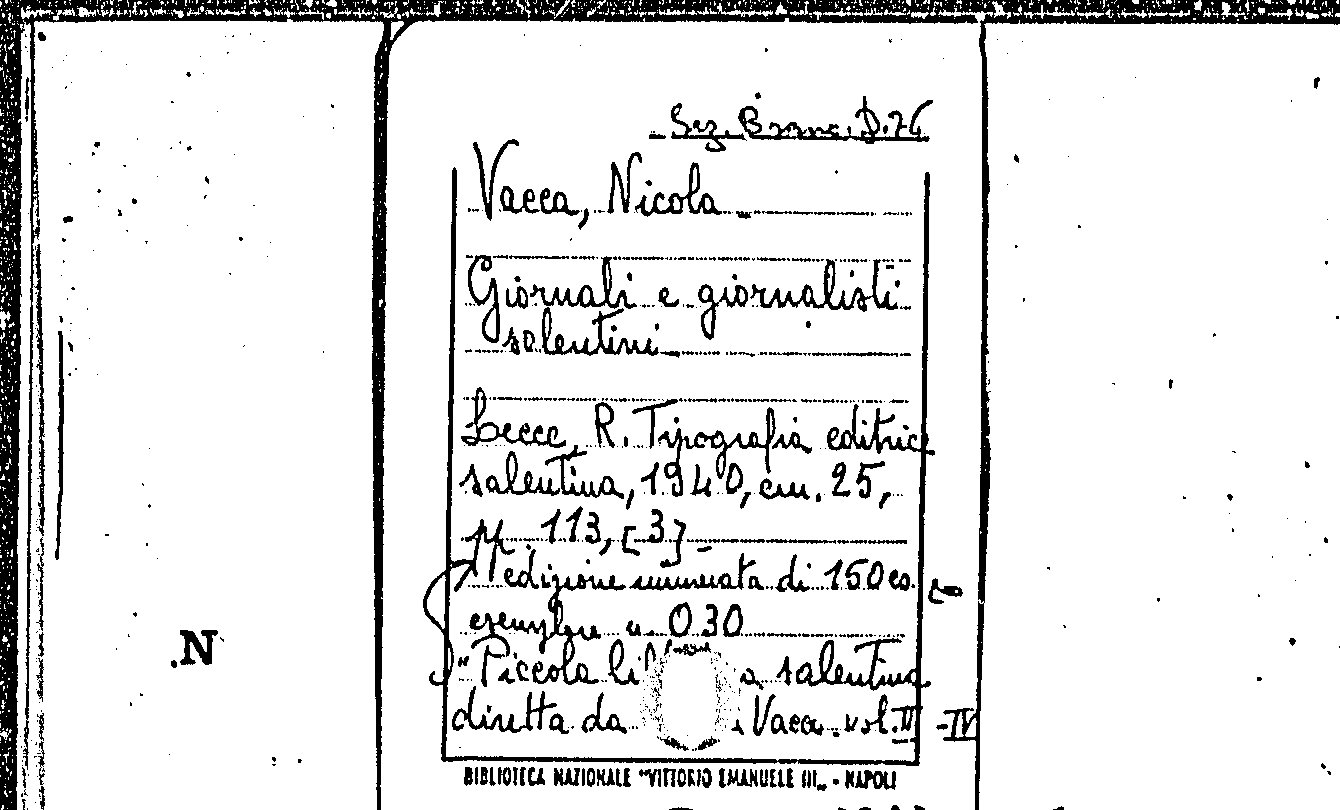 Sez. Branc. D.76
Vacca, Nicola
Giornali e giornalisti
salentini
Lecce, R. Tipografia editrice
salentina, 1940, cm. 25,
pp. 113, [3] -
edizione numerata di 150 es.
esemplare n. 030
"Piccola salentina
diretta da Vacca. vol. IV
.N
BIBLIOTECA NAZIONALE "VITTORIO EMANUELE III„ - NAPOLI